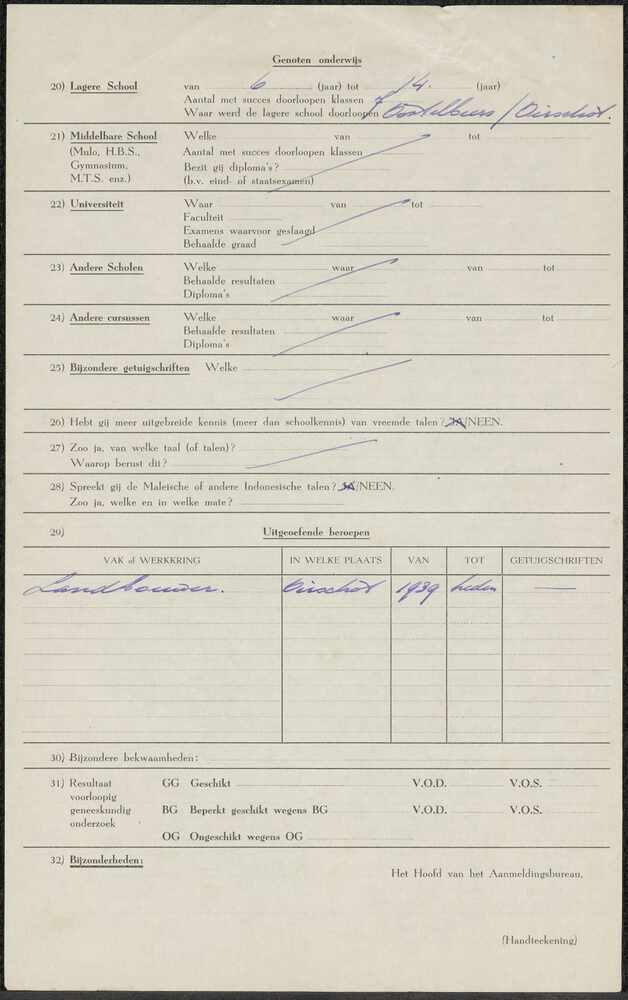 Genoten onderwijs
20) Lagere School van 6 (jaar) tot 14. (jaar)
Aantal met succes doorloopen klassen 7
Waar werd de lagere school doorloopen Oostelbeers / Oirschot.
21) Middelbare School Welke van tot
(Mulo, H.B.S., Aantal met succes doorloopen klassen
Gymnasium, Bezit gij diploma's?
M.T.S. enz.) (b.v. eind- of staatsexamen)
22) Universiteit Waar van tot
Faculteit
Examens waarvoor geslaagd
Behaalde graad
23) Andere Scholen Welke waar van tot
Behaalde resultaten
Diploma's
24) Andere cursussen Welke waar van tot
Behaalde resultaten
Diploma's
25) Bijzondere getuigschriften Welke
26) Hebt gij meer uitgebreide kennis (meer dan schoolkennis) van vreemde talen? JA/NEEN.
27) Zoo ja, van welke taal (of talen)?
Waarop berust dit?
28) Spreekt gij de Maleische of andere Indonesische talen? JA/NEEN.
Zoo ja, welke en in welke mate?
29) Uitgeoefende beroepen
VAK of WERKKRING IN WELKE PLAATS VAN TOT GETUIGSCHRIFTEN
Landbouwer. Oirschot 1939 heden —
30) Bijzondere bekwaamheden:
31) Resultaat GG Geschikt V.O.D. V.O.S.
voorloopig
geneeskundig BG Beperkt geschikt wegens BG V.O.D. V.O.S.
onderzoek
OG Ongeschikt wegens OG
32) Bijzonderheden:
Het Hoofd van het Aanmeldingsbureau,
(Handteekening)